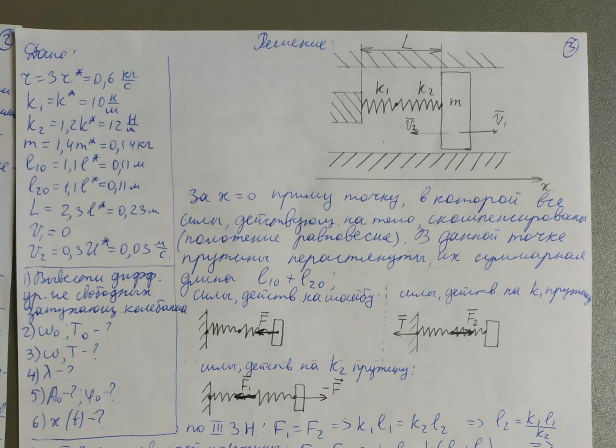 Дано:
r = 3r* = 0,6 кг/с
k₁ = k* = 10 Н/м
k₂ = 1,2k* = 12 Н/м
m = 1,4m* = 0,14 кг
l₁₀ = 1,1l* = 0,11 м
l₂₀ = 1,1l* = 0,11 м
L = 2,3l* = 0,23 м
V₁ = 0
V₂ = 0,3U* = 0,03 м/с
1) Вывести дифф.
ур-ие свободных
затухающ. колебаний
2) ω₀, T₀ - ?
3) ω, T - ?
4) λ - ?
5) A₀ - ?; φ₀ - ?
6) x(t) - ?
Решение:
3
L
k₁ k₂ m
V₂ V₁
x
За x = 0 приму точку, в которой все
силы, действующ. на тело, скомпенсированы
(положение равновесия). В данной точке
пружины нерастянуты, их суммарная
длина l₁₀ + l₂₀;
силы, действ на шайбу: силы, действ. на k₁ пружину
F T F₂
силы, действ на k₂ пружину:
F₁ -F
по III З.Н.: F₁ = F₂ => k₁l₁ = k₂l₂ => l₂ = k₁l₁/k₂ =>